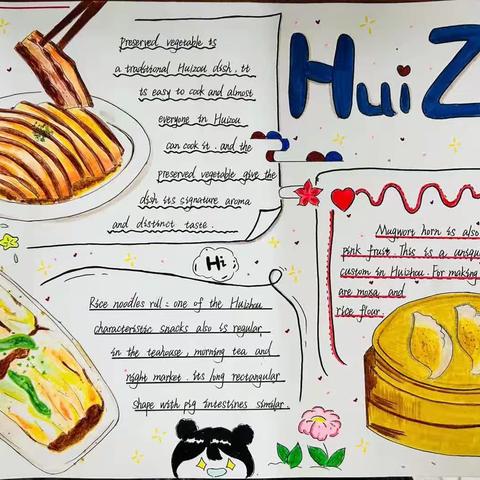 HuiZ
Preserved vegetable is
a traditional Huizou dish. it
is easy to cook and almost
everyone in Huizou
can cook it. and the
preserved vegetable give the
dish its signature aroma
and distinct taste.
Hi
Mugwort horn is also
pink fruit. This is a uniqu
custom in Huizhou. For making
are moxa, and
rice flour.
Rice noodles roll = one of the Huizhou
characteristic snacks also is regular
in the teahouse, morning tea and
night market. its long rectangular
shape with pig intestines similar.